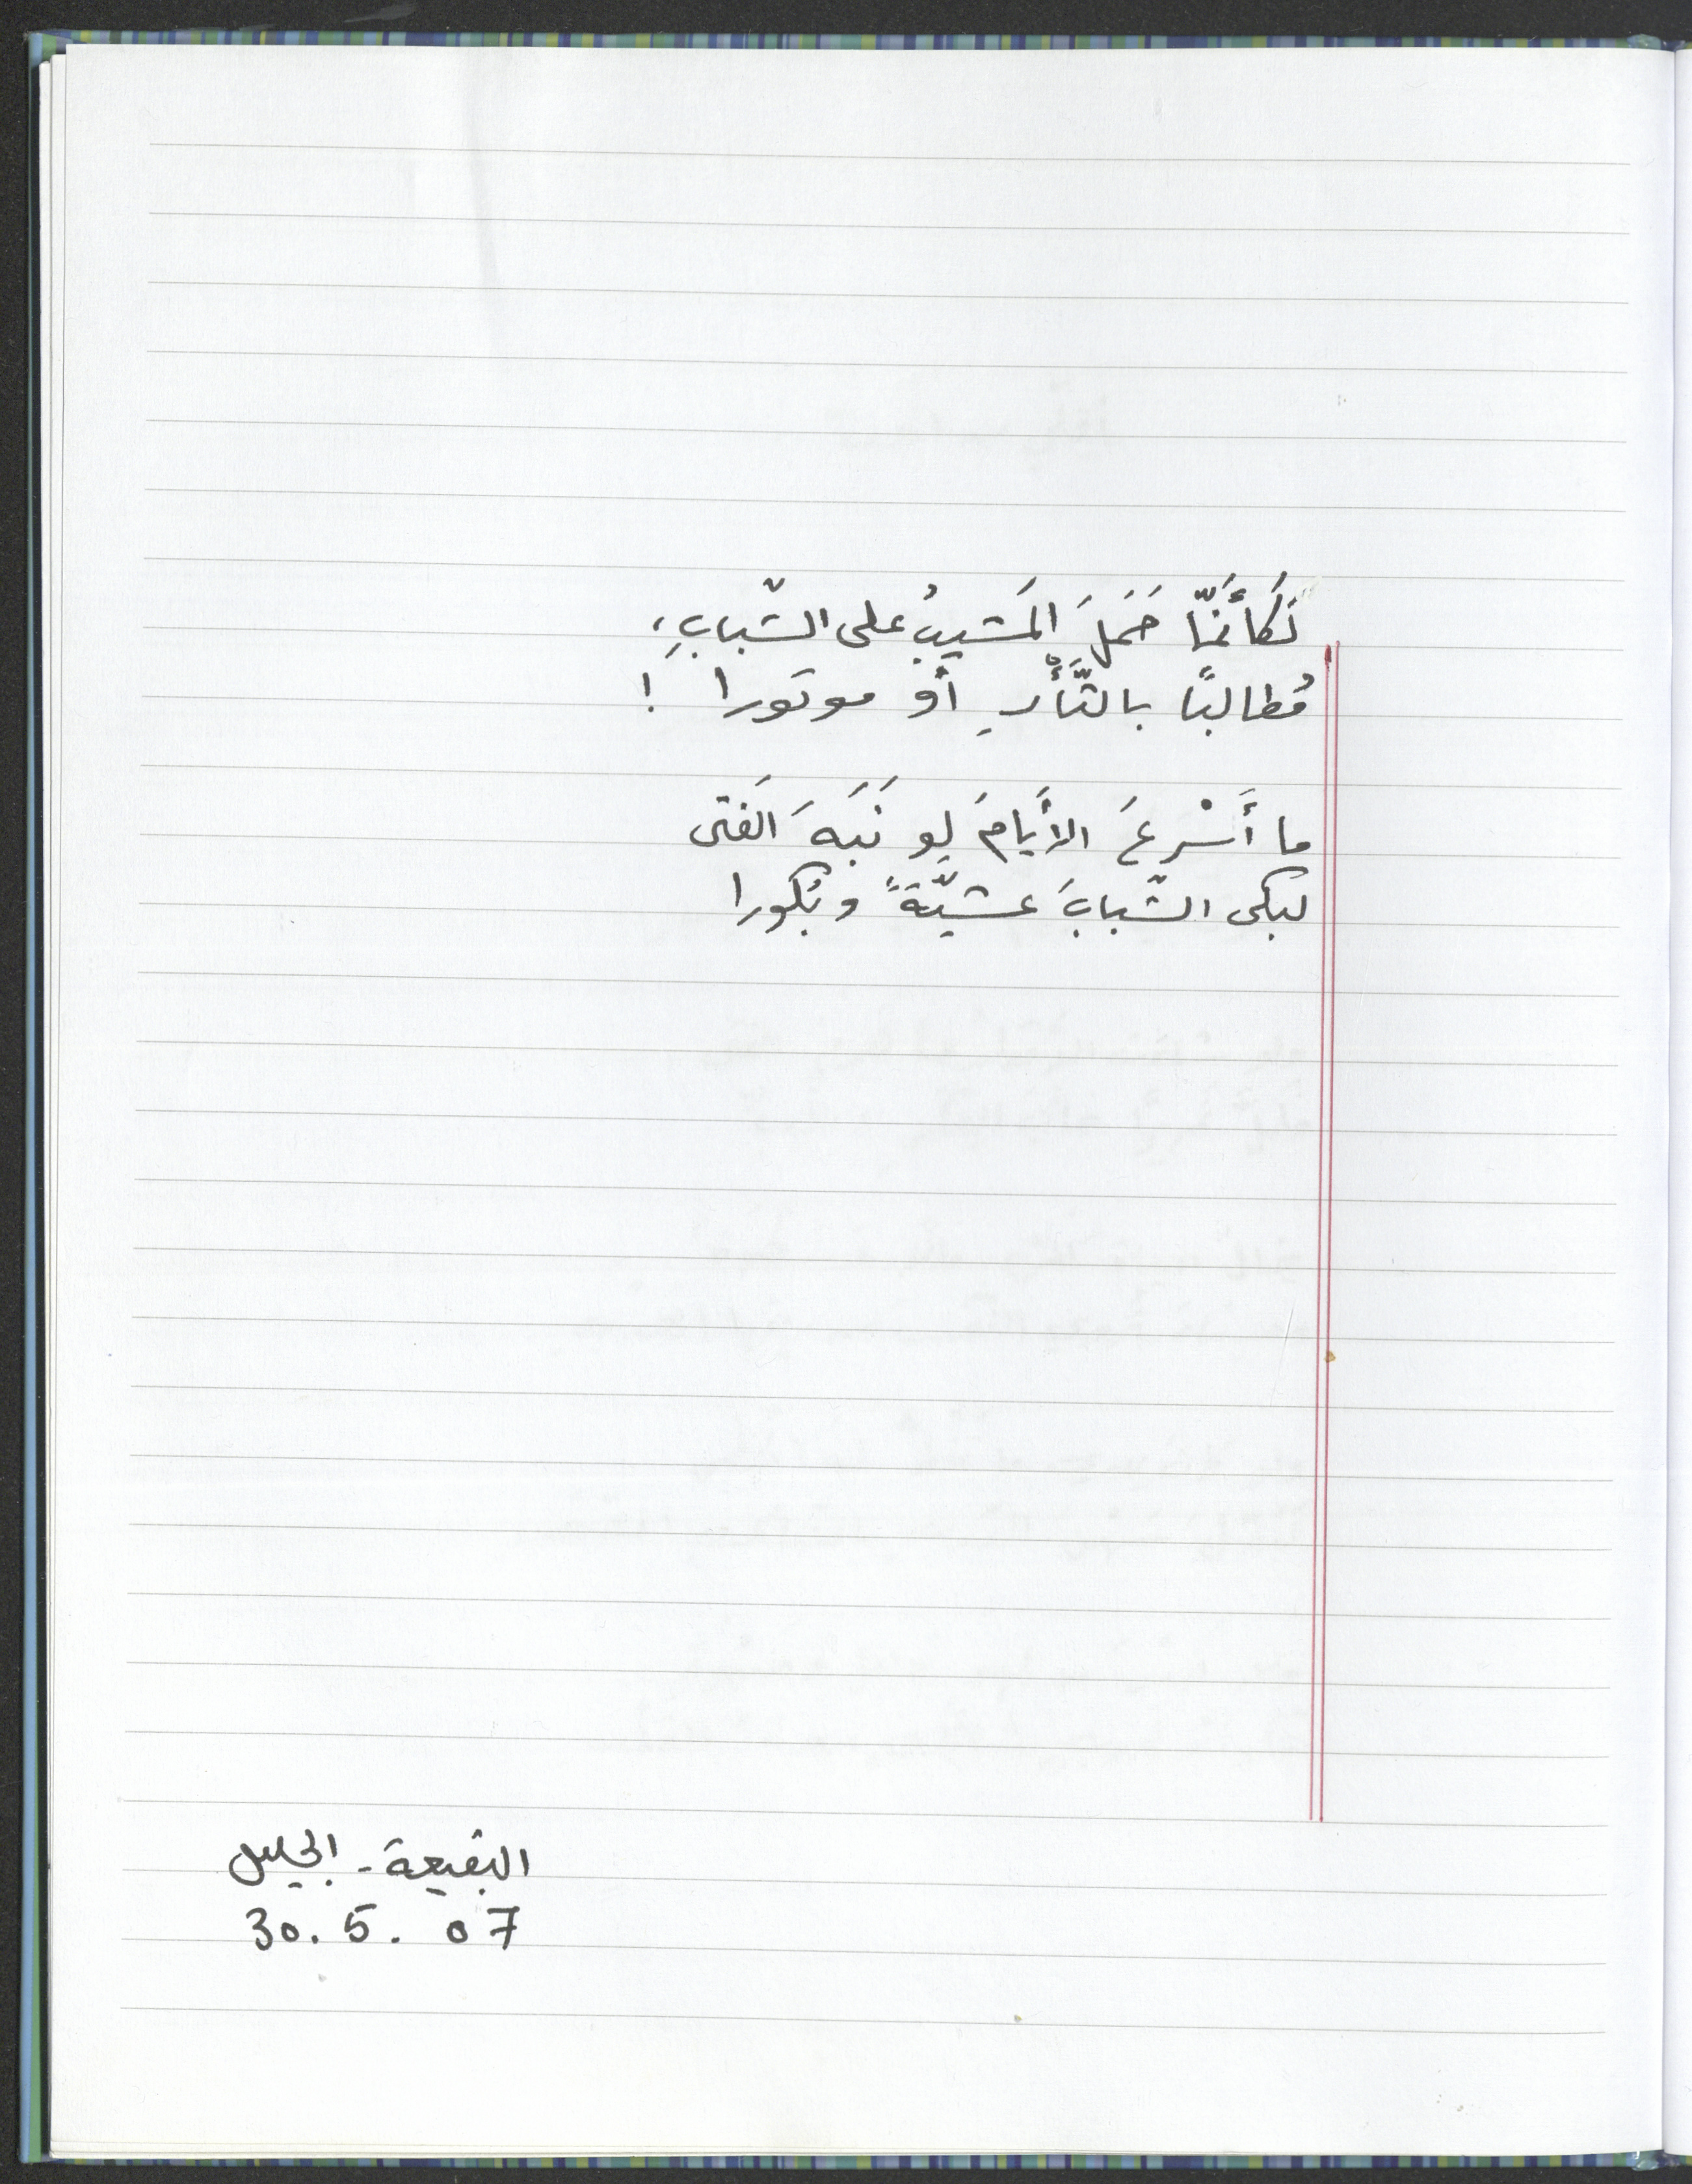 فَكَأَنَّمَا حَمَلَ المَشيبُ على الشّبابِ،
مُطالبًا بالثَّأْرِ أَو موتورا !
ما أَسْرعَ الأَيامَ لو نَبَهَ الفَتى
لبكى الشّبابَ عشيّةً وبُكورا
البقيعة - الجليل
30. 5. 07